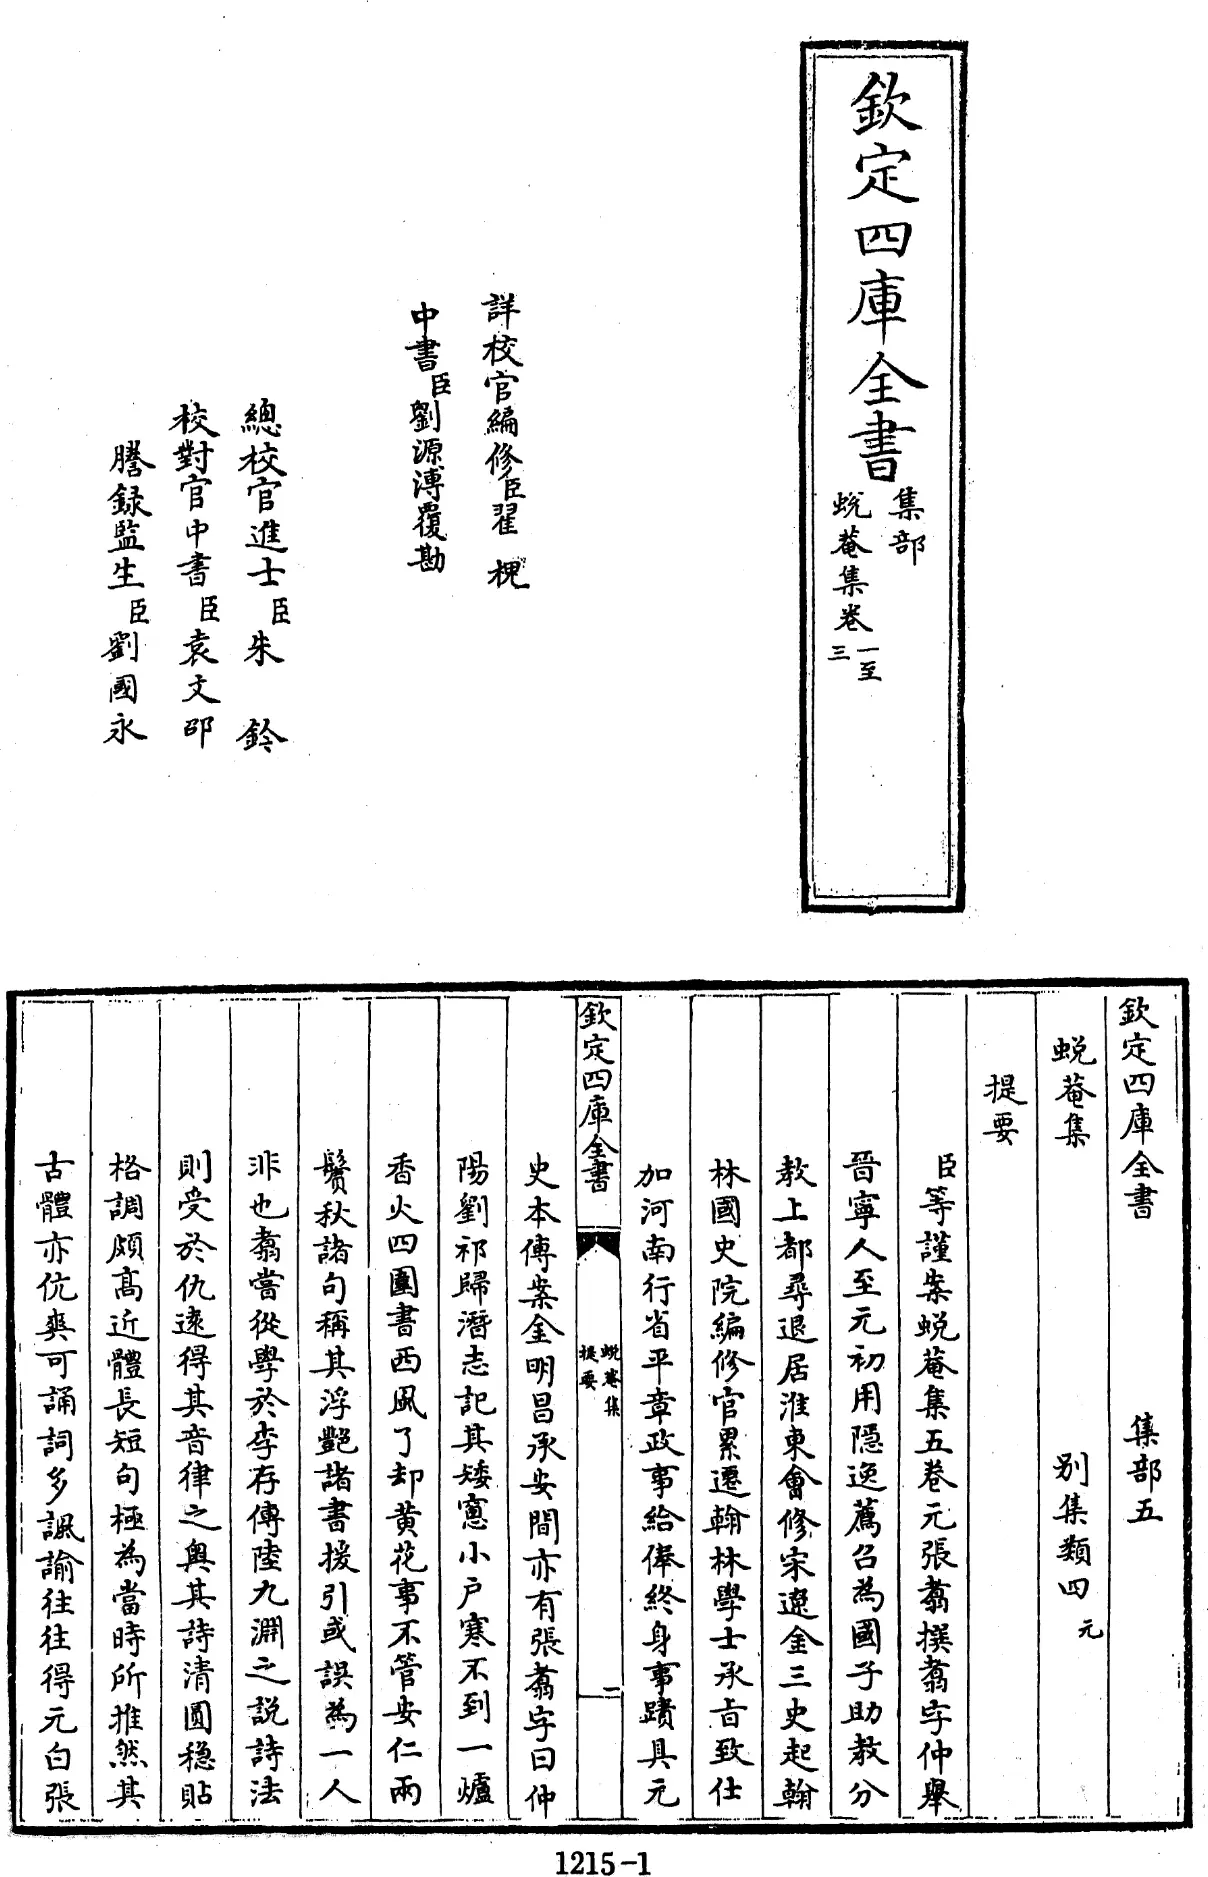 欽定四庫全書
集部
蛻菴集卷一至三
詳校官編修臣翟槐
中書臣劉源溥覆勘
總校官進士臣朱鈐
校對官中書臣袁文邵
謄録監生臣劉國永
欽定四庫全書 集部五
蛻菴集 别集類四 元
提要
臣等謹案蛻菴集五卷元張翥撰翥字仲舉
晉寧人至元初用隠逸薦召為國子助教分
教上都尋退居淮東會修宋遼金三史起翰
林國史院編修官累遷翰林學士承旨致仕
加河南行省平章政事給俸終身事蹟具元
欽定四庫全書
蛻菴集
提要
一
史本傳案金明昌承安間亦有張翥字曰仲
陽劉祁歸潛志記其矮窻小户寒不到一爐
香火四圍書西風了却黄花事不管安仁兩
鬢秋諸句稱其浮艷諸書援引或誤為一人
非也翥嘗從學於李存傳陸九淵之説詩法
則受於仇逺得其音律之奥其詩清圓穏貼
格調頗髙近體長短句極為當時所推然其
古體亦伉爽可誦詞多諷諭往往得元白張
1215-1